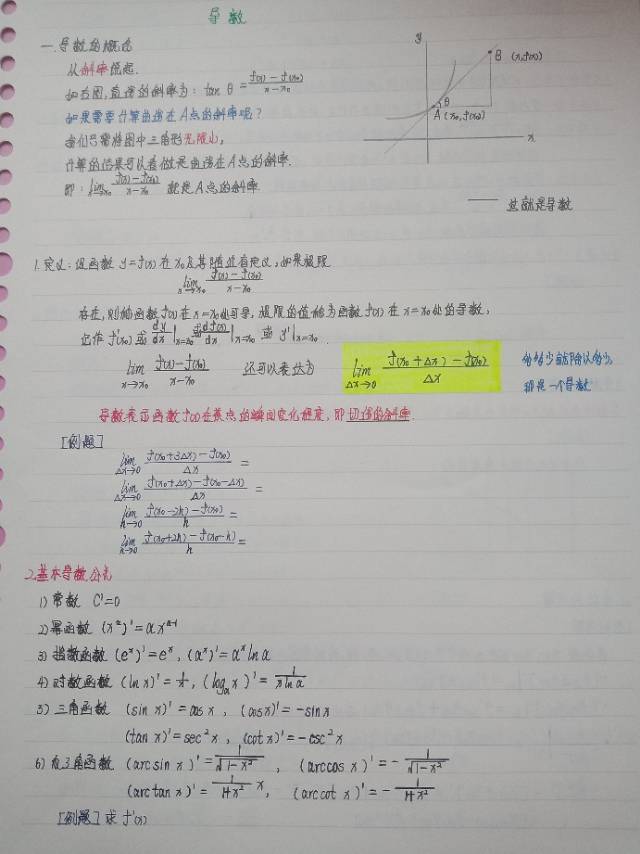 导数
一.导数的概念
从斜率说起.
如右图,直线的斜率为: tan θ = (f(x) - f(x₀))/(x - x₀)
如果需要计算曲线在A点的斜率呢?
我们只需将图中三角形无限小,
计算的结果可以看做是曲线在A点的斜率.
即: lim x→x₀ (f(x) - f(x₀))/(x - x₀) 就是A点的斜率
y
B (x, f(x))
θ
A (x₀, f(x₀))
x
—— 这就是导数
1.定义:设函数 y = f(x) 在 x₀ 及其附近有定义,如果极限
lim x→x₀ (f(x) - f(x₀))/(x - x₀)
存在,则称函数 f(x) 在 x = x₀ 处可导,极限的值称为函数 f(x) 在 x = x₀ 处的导数,
记作 f'(x₀) 或 dy/dx |x=x₀ 或 df(x)/dx |x=x₀ 或 y'|x=x₀ .
lim x→x₀ (f(x) - f(x₀))/(x - x₀) 还可以表达为 lim Δx→0 (f(x₀ + Δx) - f(x₀))/Δx
即是一个导数
导数表示函数 f(x) 在某点的瞬间变化程度,即切线的斜率.
[例题]
lim Δx→0 (f(x₀+3Δx) - f(x₀))/Δx =
lim Δx→0 (f(x₀+Δx) - f(x₀-Δx))/Δx =
lim h→0 (f(x₀-2h) - f(x₀))/h =
lim h→0 (f(x₀+2h) - f(x₀-h))/h =
2.基本导数公式
1) 常数 C'=0
2) 幂函数 (xᵃ)' = αxᵃ⁻¹
3) 指数函数 (eˣ)' = eˣ , (aˣ)' = aˣ ln a
4) 对数函数 (ln x)' = 1/x , (logₐx)' = 1/(x ln a)
5) 三角函数 (sin x)' = cos x , (cos x)' = -sin x
(tan x)' = sec²x , (cot x)' = -csc²x
6) 反三角函数 (arcsin x)' = 1/√(1-x²) , (arccos x)' = - 1/√(1-x²)
(arctan x)' = 1/(1+x²) x , (arccot x)' = - 1/(1+x²)
[例题] 求 f'(x)